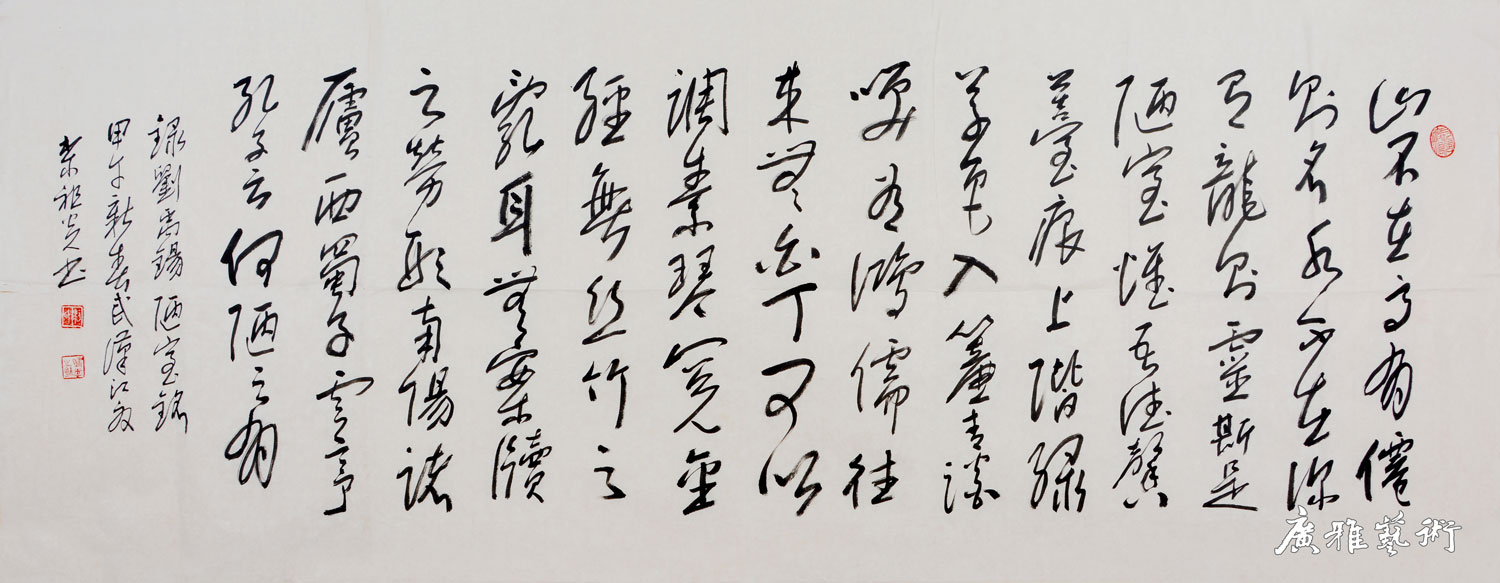 山不在高有僊
則名水不在深
有龍則靈斯是
陋室惟吾德馨
薹痕上階綠
草色入簾青談
笑有鴻儒往
來無白丁可以
調素琴閱金
經無絲竹之
亂耳無案牘
之勞形南陽諸
廬西蜀子雲亭
孔子云何陋之有
錄劉禹錫陋室銘
甲午新春武漢江夏
祖炎书
廣雅藝術